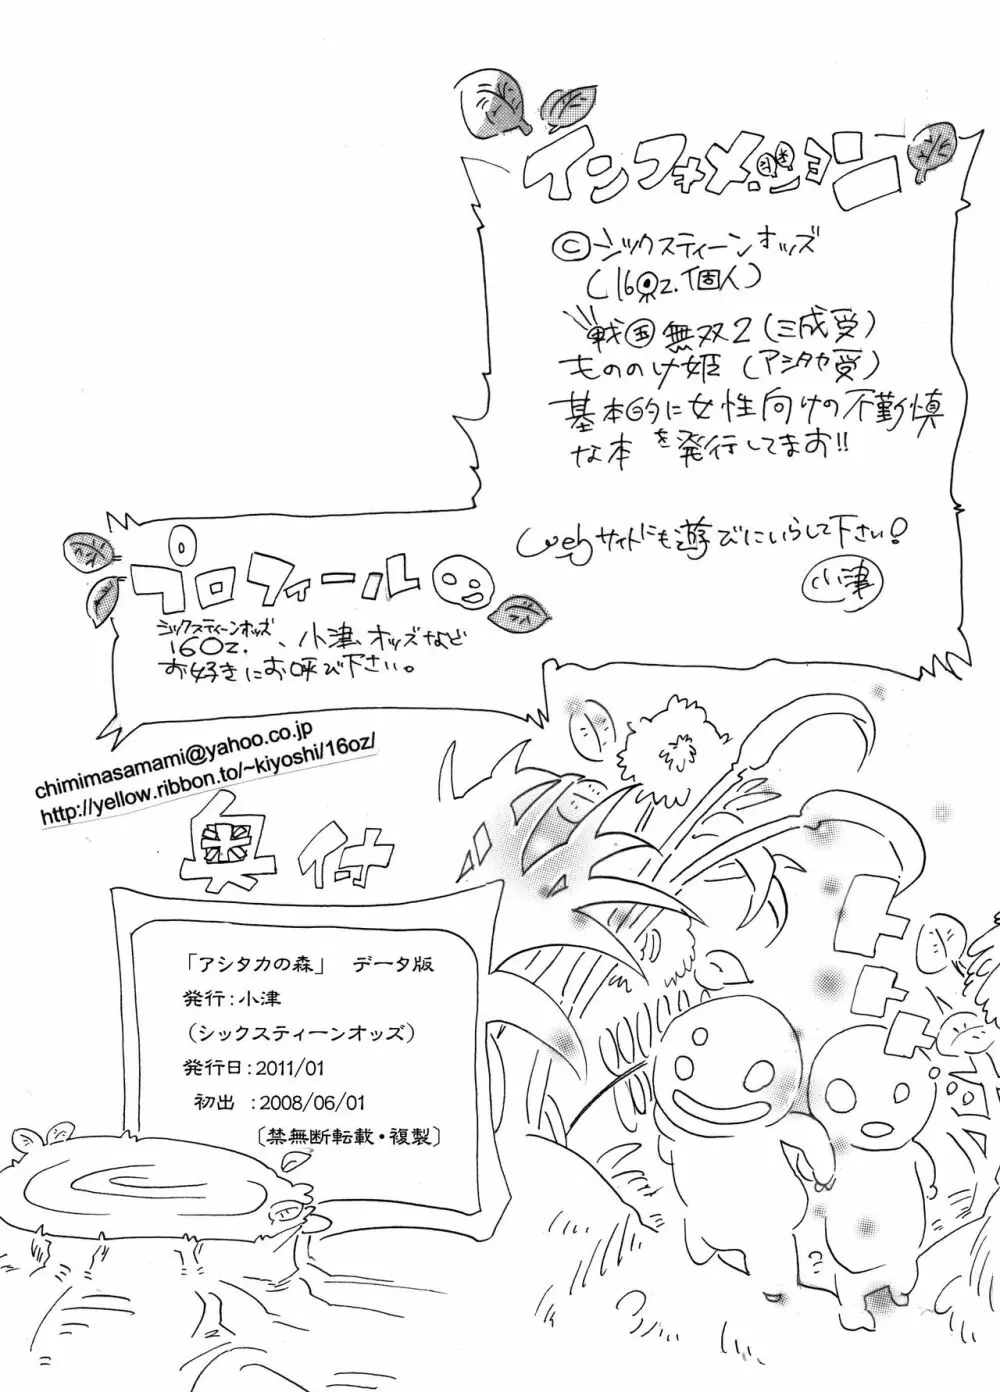 インフォメーション
©シックスティーンオッズ
(16oz.個人)
戦国無双2(三成受)
もののけ姫(アシタカ受)
基本的に女性向けの不謹慎
な本を発行してます!!
webサイトにも遊びにいらして下さい!
小津
プロフィール
シックスティーンオッズ
16oz.、小津、オッズなど
お好きにお呼び下さい。
chimimasamami@yahoo.co.jp
http://yellow.ribbon.to/~kiyoshi/16oz/
奥付
「アシタカの森」 データ版
発行:小津
(シックスティーンオッズ)
発行日:2011/01
初出 :2008/06/01
〔禁無断転載・複製〕
カタカタ